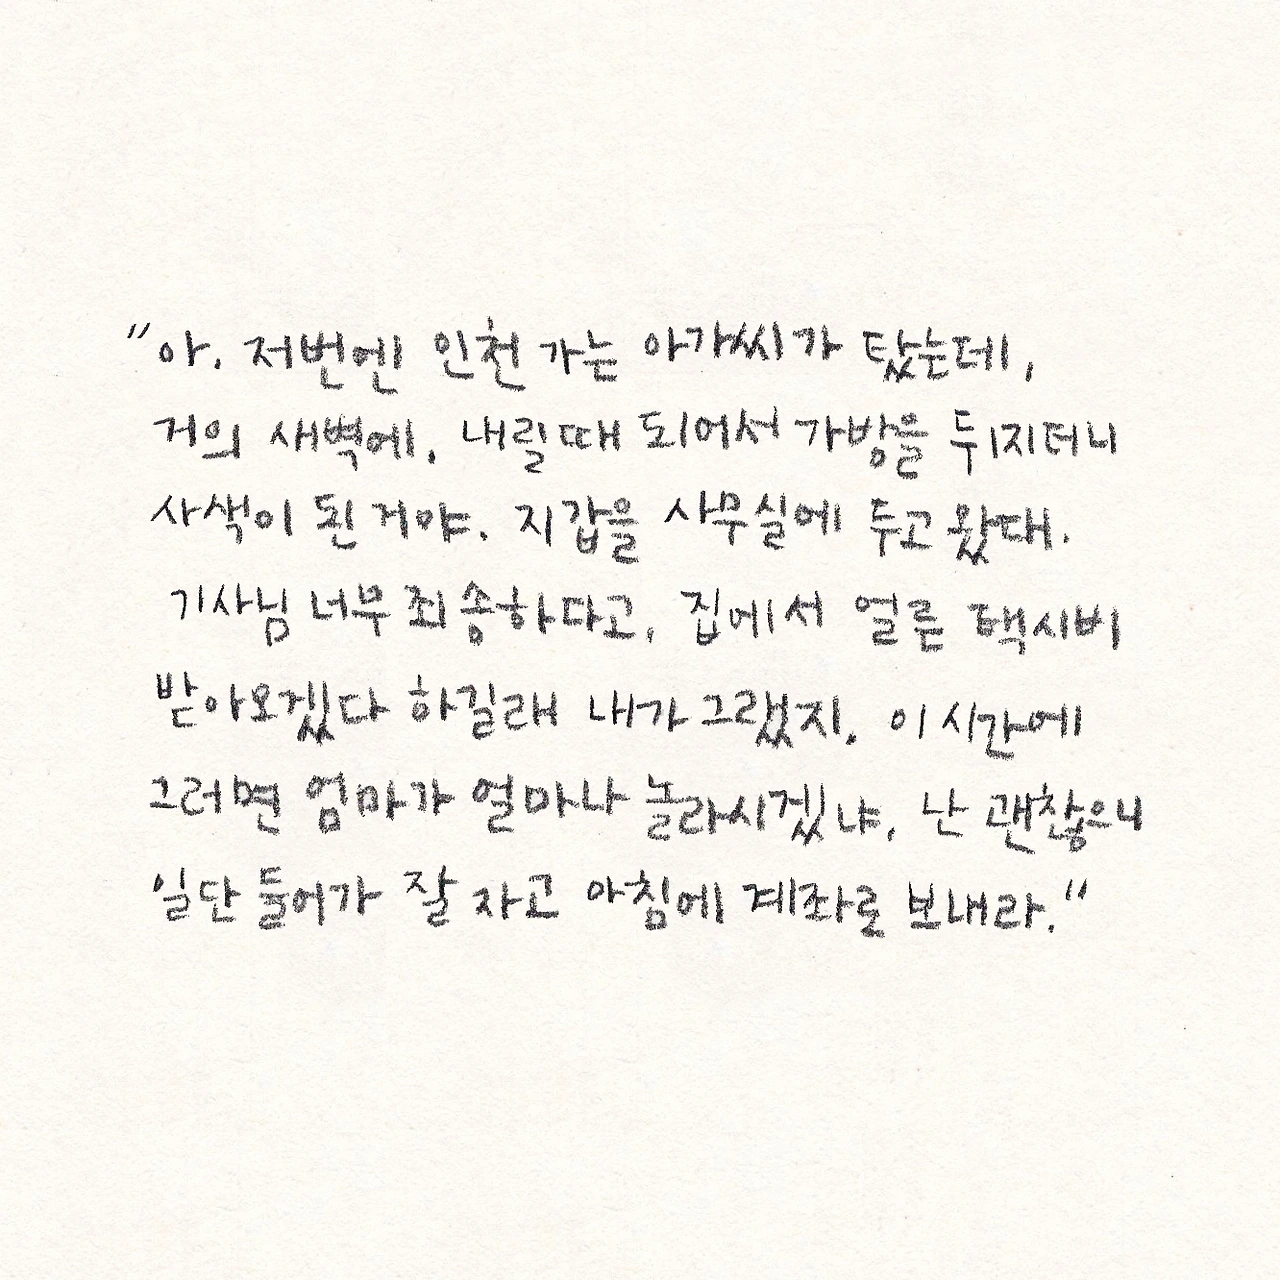 "아. 저번엔 인천 가는 아가씨가 탔는데,
거의 새벽에. 내릴때 되어서 가방을 뒤지더니
사색이 된 거야. 지갑을 사무실에 두고 왔대.
기사님 너무 죄송하다고, 집에서 얼른 택시비
받아오겠다 하길래 내가 그랬지. 이 시간에
그러면 엄마가 얼마나 놀라시겠냐, 난 괜찮으니
일단 들어가 잘 자고 아침에 계좌로 보내라."